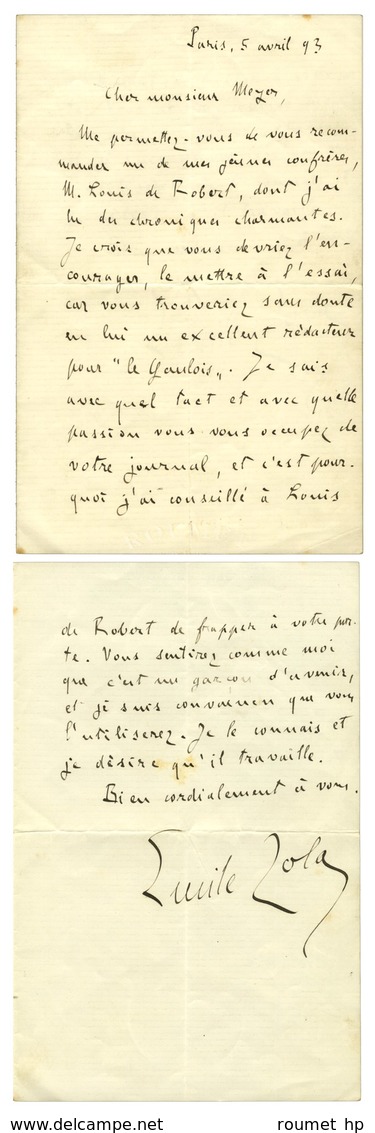 Paris, 5 avril 93
Cher monsieur Meyer,
Me permettez-vous de vous recom-
mander un de mes jeunes confrères,
M. Louis de Robert, dont j'ai
lu des chroniques charmantes.
Je crois que vous devriez l'en-
courager, le mettre à l'essai,
car vous trouveriez sans doute
en lui un excellent rédacteur
pour "le Gaulois". Je sais
avec quel tact et avec quelle
passion vous vous occupez de
votre journal, et c'est pour-
quoi j'ai conseillé à Louis
de Robert de frapper à votre por-
te. Vous sentirez comme moi
que c'est un garçon d'avenir,
et je suis convaincu que vous
l'utiliserez. Je le connais et
je désire qu'il travaille.
Bien cordialement à vous.
Emile Zola
© roumet hp